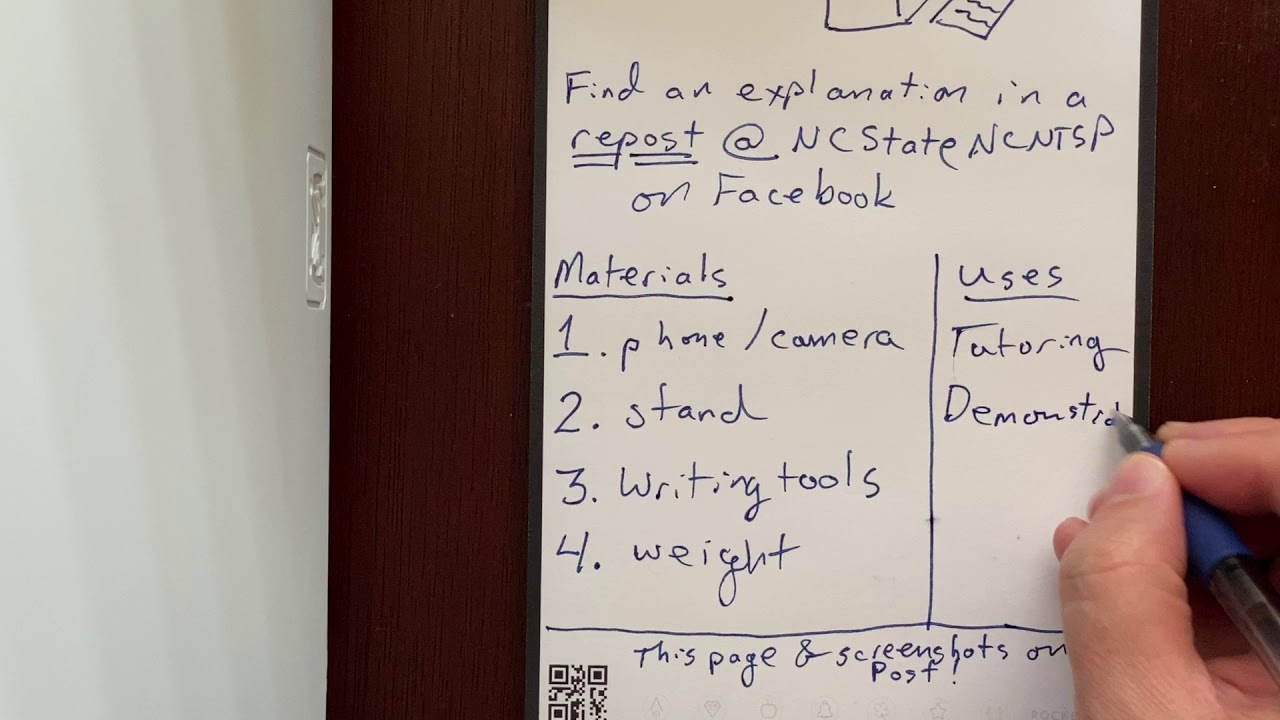 Find an explanation in a
repost @ NCStateNCNTSP
on Facebook
Materials
1. phone/camera
2. stand
3. Writing tools
4. weight
uses
Tutoring
Demonstra
This page & screenshots on
Post!